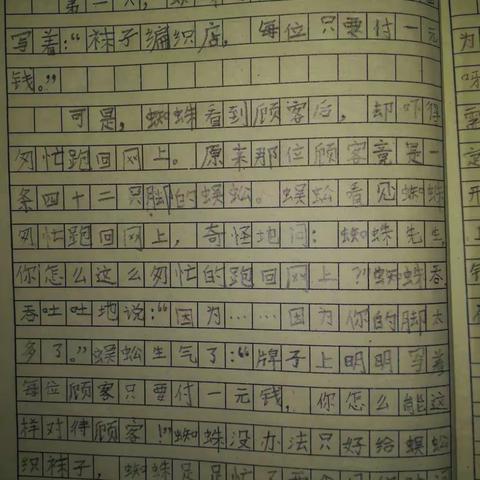 第二天，蜘蛛
写着：“袜子编织店，每位只要付一元
钱。”
可是，蜘蛛看到顾客后，却吓得
匆忙跑回网上。原来那位顾客竟是一
条四十二只脚的蜈蚣。蜈蚣看见蜘蛛
匆忙跑回网上，奇怪地问：蜘蛛先生
你怎么这么匆忙的跑回网上？”蜘蛛吞
吞吐吐地说：“因为……因为你的脚太
多了。”蜈蚣生气了：“牌子上明明写着
每位顾家只要付一元钱，你怎么能这
样对待顾客！”蜘蛛没办法只好给蜈蚣
织袜子，蜘蛛足足忙了